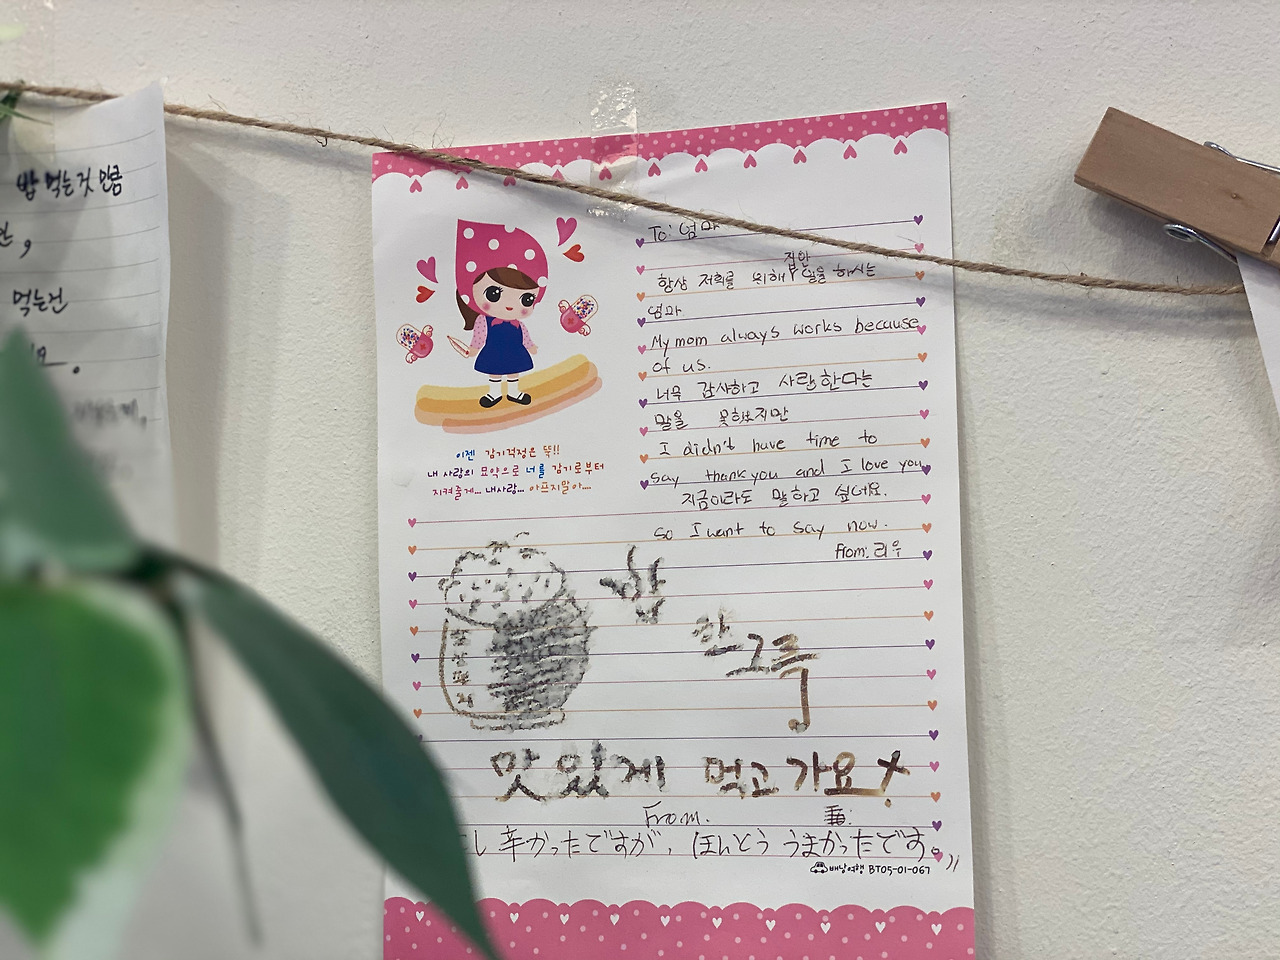 밥 먹는것 만큼
먹는건
To: 엄마
집안
항상 저희를 위해 일을 하시는
엄마
My mom always works because
of us.
너무 감사하고 사랑한다는
말을 못해보지만
I didn't have time to
say thank you and I love you
지금이라도 말하고 싶어요.
so I want to say now.
From: 리우
이젠 감기걱정은 뚝!!
내 사랑의 묘약으로 너를 감기로부터
지켜줄게... 내사랑... 아프지말아....
밥
한그릇
맛있게 먹고가요!
From.
し辛かったですが、ほんとう うまかったです。
배낭여행 BT05-01-067